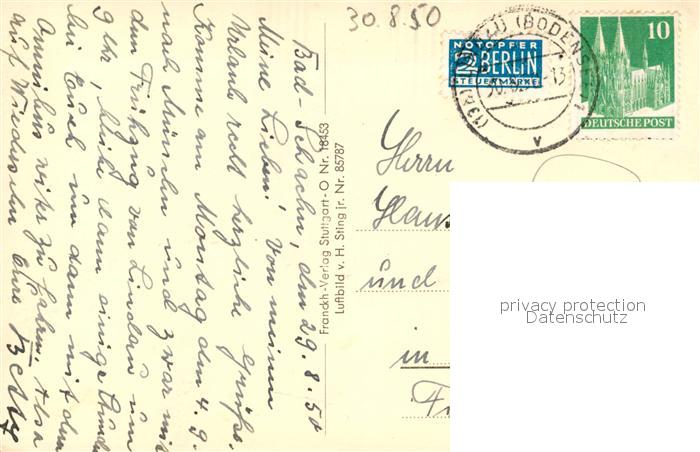 30.8.50
Bad-Schachen, den 29.8.50
Meine Lieben! Von meinem
Urlaub recht herzliche Grüße.
Komme am Montag den 4.9.
nach München und zwar mit
dem Frühzug von Lindau um
9 Uhr, bleibe dann einige Stunden
bei Euch um dann mit dem
Omnibus weiter zu fahren. Also
auf Wiedersehn Eure Betty
Franckh-Verlag Stuttgart-O Nr. 18453
Luftbild v. H. Sting jr. Nr. 85787
NOTOPFER
2 BERLIN
STEUERMARKE
(BODENS
10
DEUTSCHE POST
Herrn
und
in
privacy protection
Datenschutz